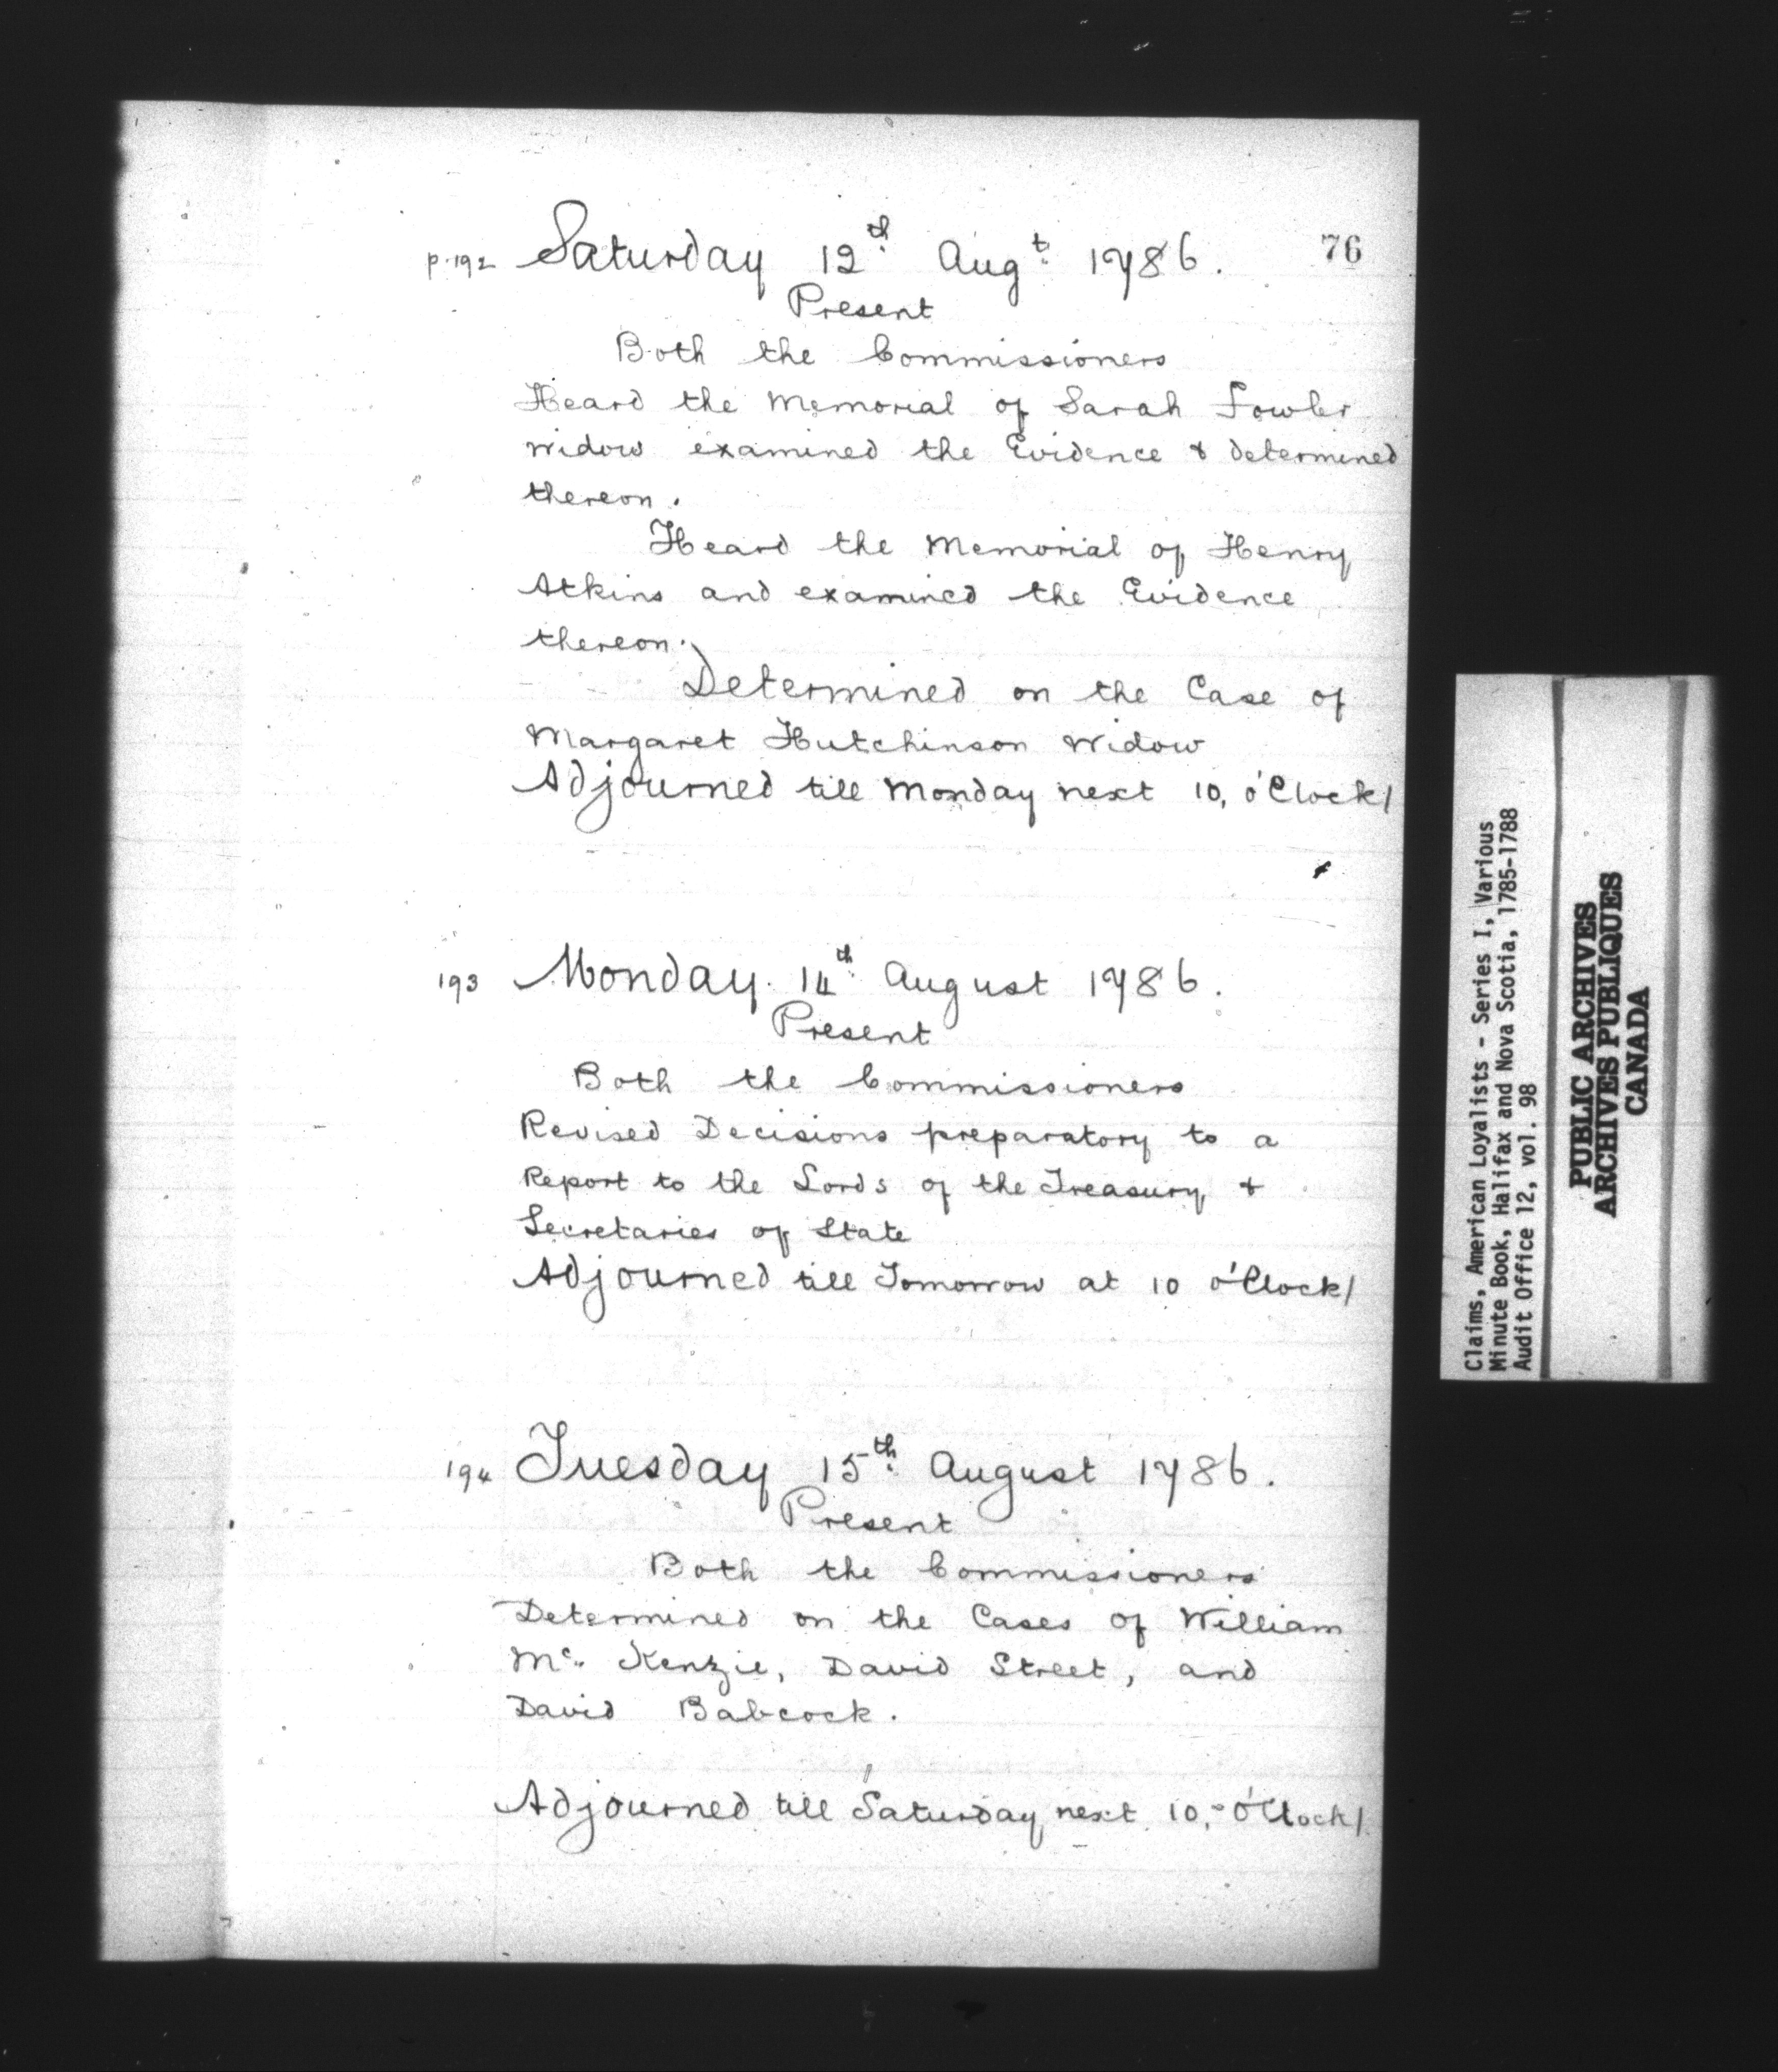 76
p.192 Saturday 12th Augt 1786.
Present
Both the Commissioners
Heard the Memorial of Sarah Fowler
Widow examined the Evidence & determined
thereon.
Heard the Memorial of Henry
Atkins and examined the Evidence
thereon.
Determined on the Case of
Margaret Hutchinson Widow
Adjourned till Monday next 10, o'Clock/
193 Monday 14th August 1786.
Present
Both the Commissioners
Revised Decisions preparatory to a
Report to the Lords of the Treasury &
Secretaries of State
Adjourned till Tomorrow at 10 o'Clock/
194 Tuesday 15th August 1786.
Present
Both the Commissioners
Determined on the Cases of William
Mc. Kenzie, David Street, and
David Babcock.
Adjourned till Saturday next 10,- O'Clock/.
Claims, American Loyalists - Series I, Various
Minute Book, Halifax and Nova Scotia, 1785-1788
Audit Office 12, vol. 98
PUBLIC ARCHIVES
ARCHIVES PUBLIQUES
CANADA